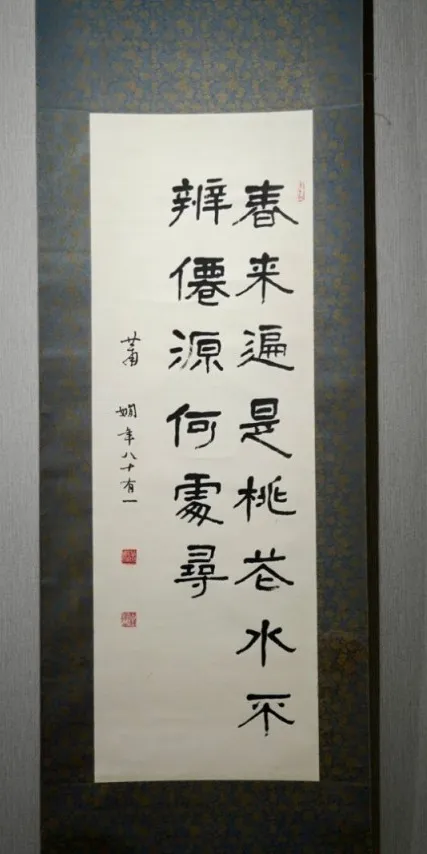 春来遍是桃花水不
辨僊源何處尋
蕭嫻年八十有一